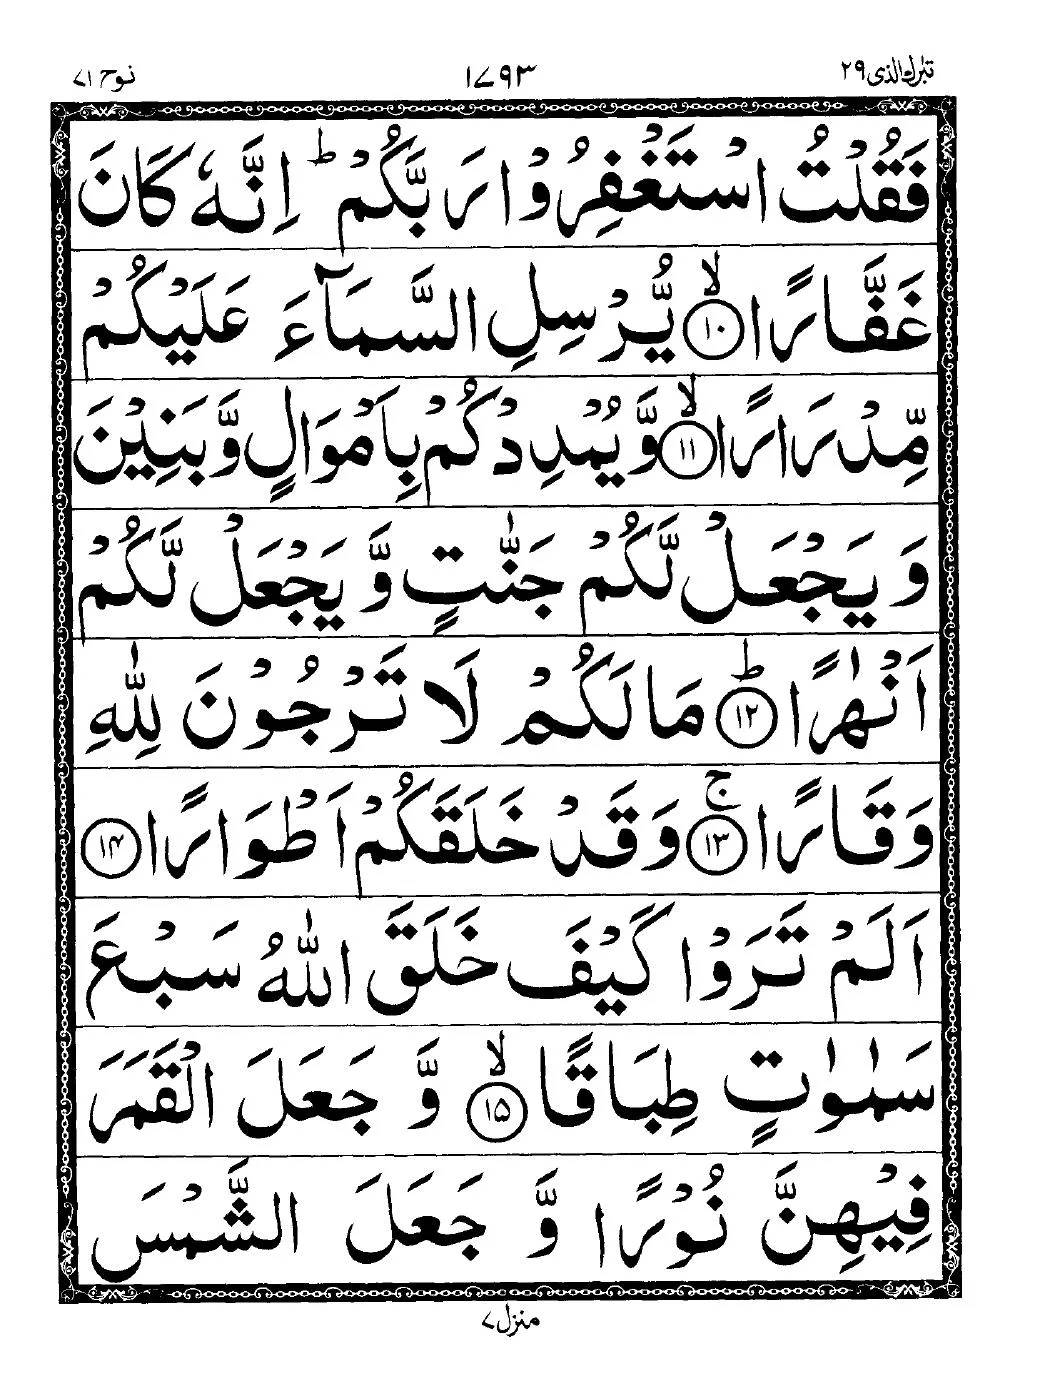 تبٰرك الذى ٢٩
١٧٩٣
نوح ٧١
فَقُلْتُ اسْتَغْفِرُوْا رَبَّكُمْ ؕ اِنَّهٗ كَانَ
غَفَّارًا ۙ﴿١٠﴾ يُّرْسِلِ السَّمَآءَ عَلَيْكُمْ
مِّدْرَارًا ۙ﴿١١﴾ وَّيُمْدِدْكُمْ بِاَمْوَالٍ وَّبَنِيْنَ
وَيَجْعَلْ لَّكُمْ جَنّٰتٍ وَّيَجْعَلْ لَّكُمْ
اَنْهٰرًا ؕ﴿١٢﴾ مَالَكُمْ لَا تَرْجُوْنَ لِلّٰهِ
وَقَارًا ۚ﴿١٣﴾ وَقَدْ خَلَقَكُمْ اَطْوَارًا ﴿١٤﴾
اَلَمْ تَرَوْا كَيْفَ خَلَقَ اللّٰهُ سَبْعَ
سَمٰوٰتٍ طِبَاقًا ۙ﴿١٥﴾ وَّ جَعَلَ الْقَمَرَ
فِيْهِنَّ نُوْرًا وَّ جَعَلَ الشَّمْسَ
منزل ٧